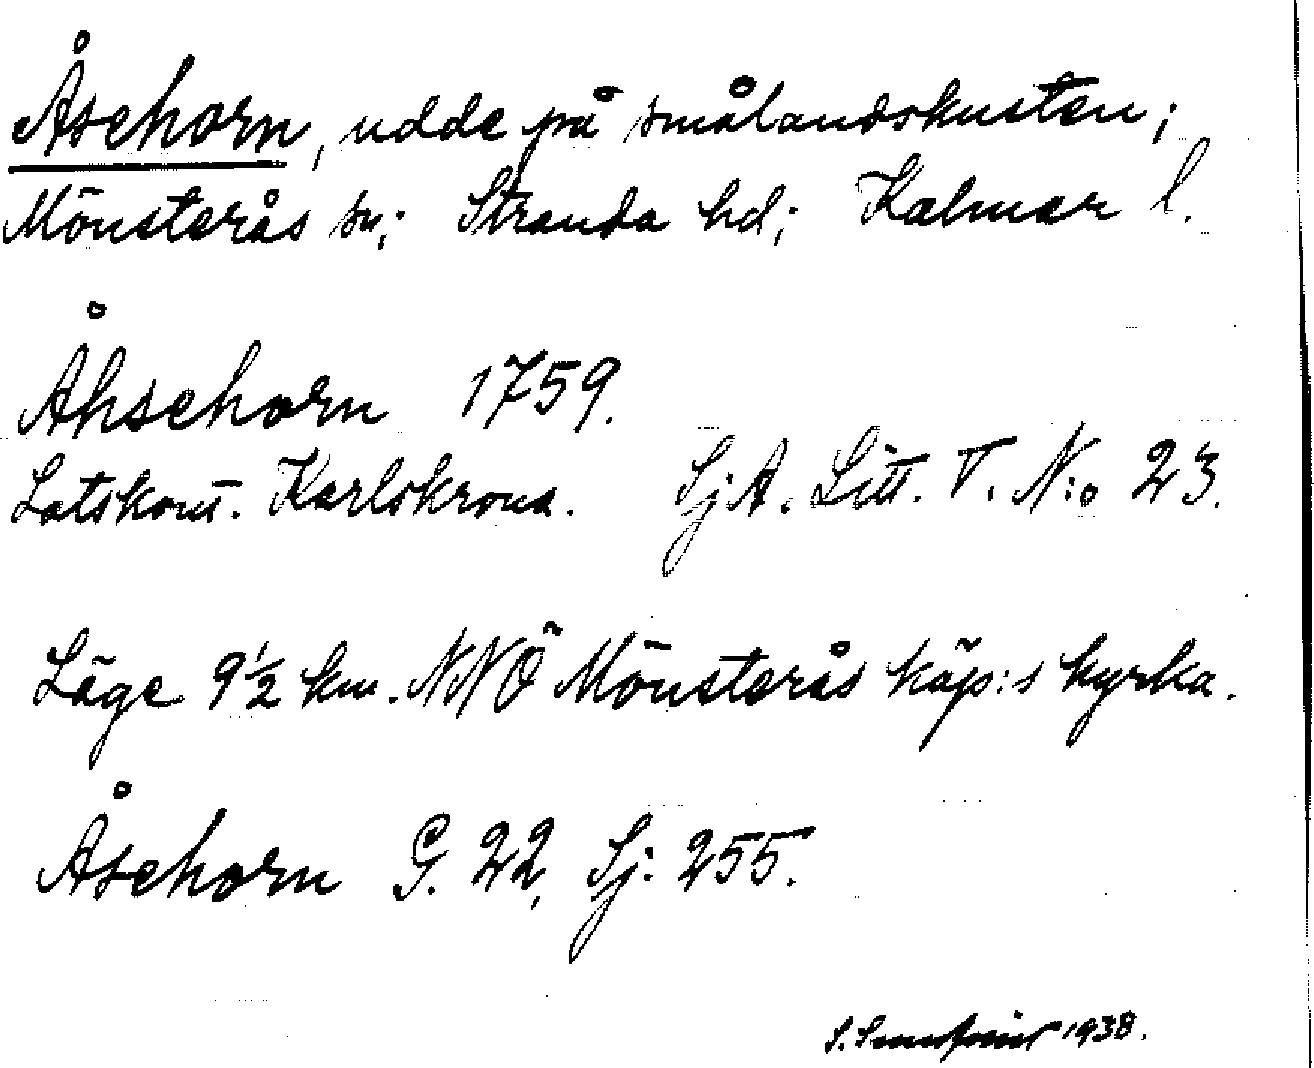 Åsehorn, udde på smålandskusten;
Mönsterås sn; Stranda hd; Kalmar l.
Åhsehorn 1759.
Lotskont. Karlskrona. SjA. Litt. T. N:o 23.
Läge 9½ km. NNÖ Mönsterås köp:s kyrka.
Åsehorn G. 22, Sj: 255.
S. 1938.